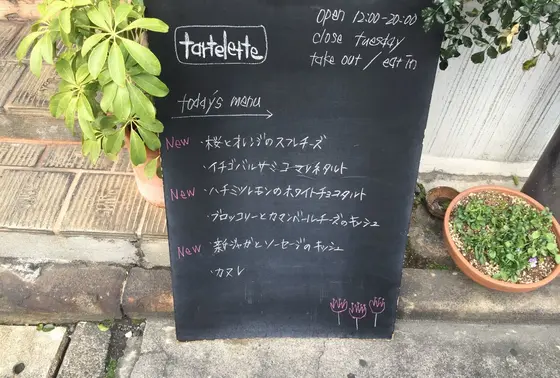 tartelette
open 12:00-20:00
close tuesday
take out / eat in
today's menu
New ・桜とオレンジのスフレチーズ
・イチゴバルサミコーマレネタルト
New ・ハチミツレモンのホワイトチョコタルト
・ブロッコリーとカマンベールチーズのキッシュ
New ・新ジャガとソーセージのキッシュ
・カヌレ